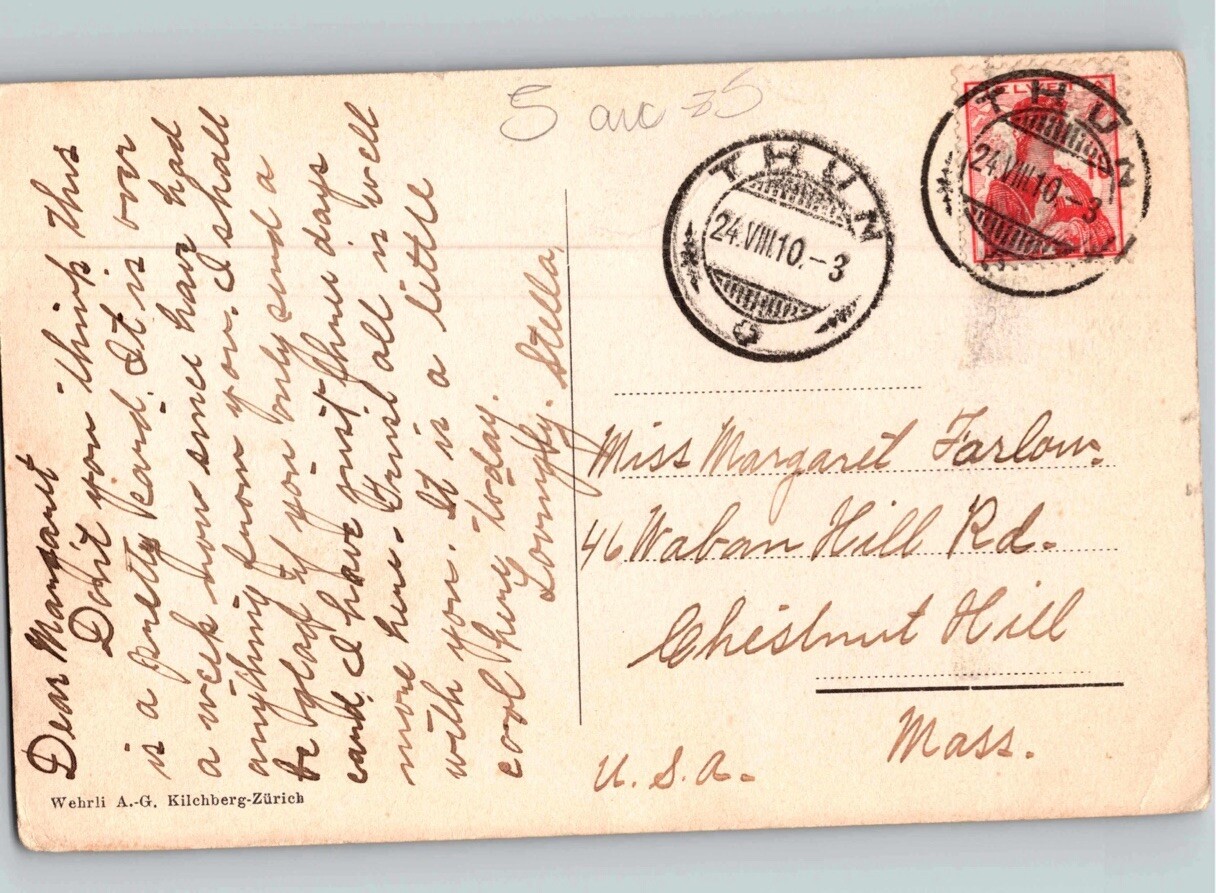 Dear Margaret
Don't you think this
is a pretty card. It is over
a week now since have had
anything from you. I shall
be glad if you only send a
card. I have just three days
more here. Trust all is well
with you. It is a little
cool here today.
Lovingly. Stella
Wehrli A.-G. Kilchberg-Zürich
5
35
THUN
24.VIII.10.-3
HELVETIA
THUN
24.VIII.10.-3
Miss Margaret Farlow.
46 Waban Hill Rd.
Chestnut Hill
Mass.
U.S.A.